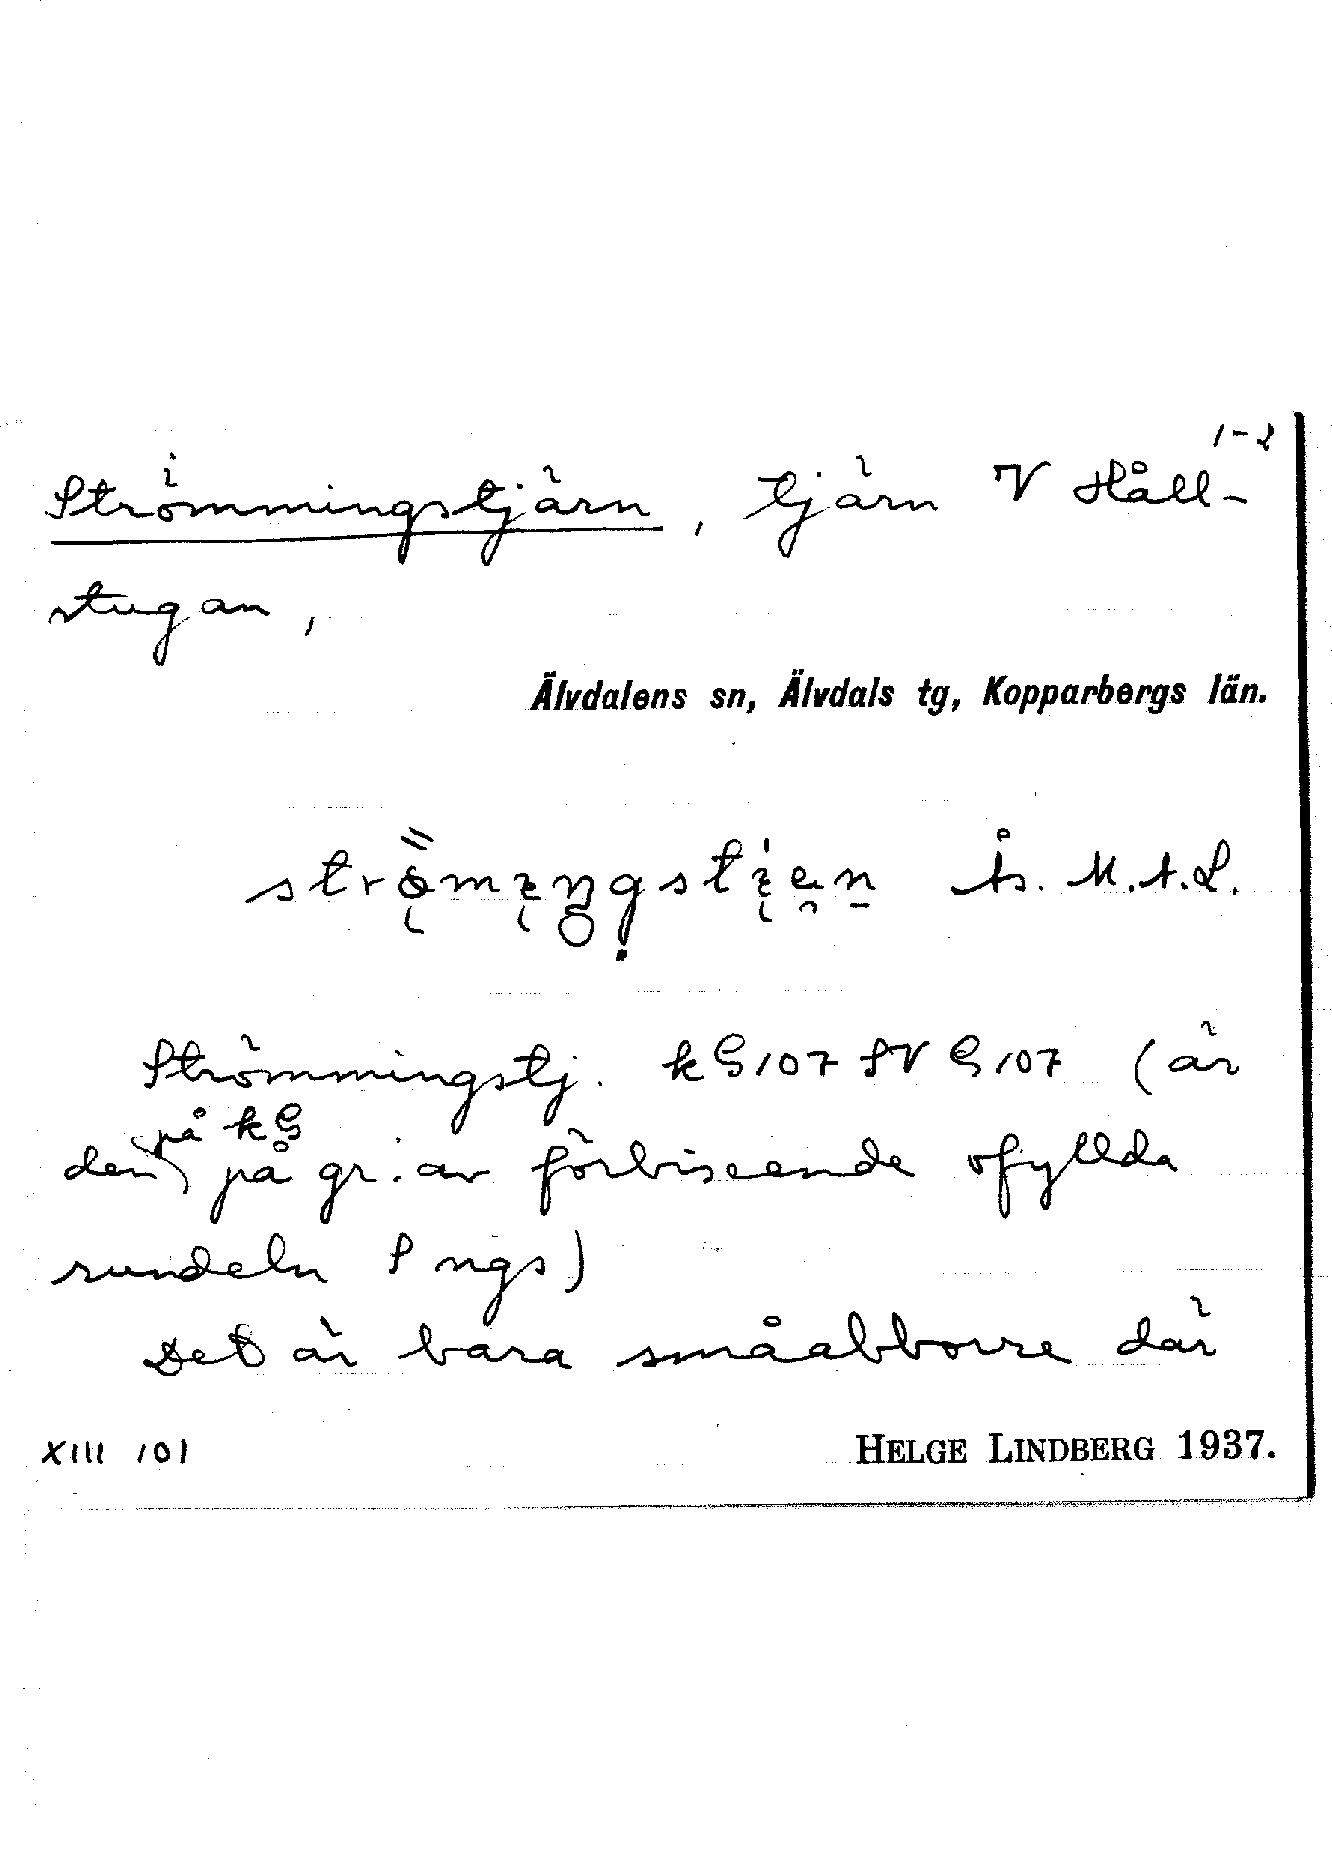 1-2
Strömmingstjärn, tjärn V Håll-
stugan,
Älvdalens sn, Älvdals tg, Kopparbergs län.
Ås. M.A.L.
Strömmingstj. kG107 SV G107 (är
på kG
den på gr. av förbiseende ofyllda
rundeln S ngs)
Det är bara småabborre där
XIII 101 HELGE LINDBERG 1937.